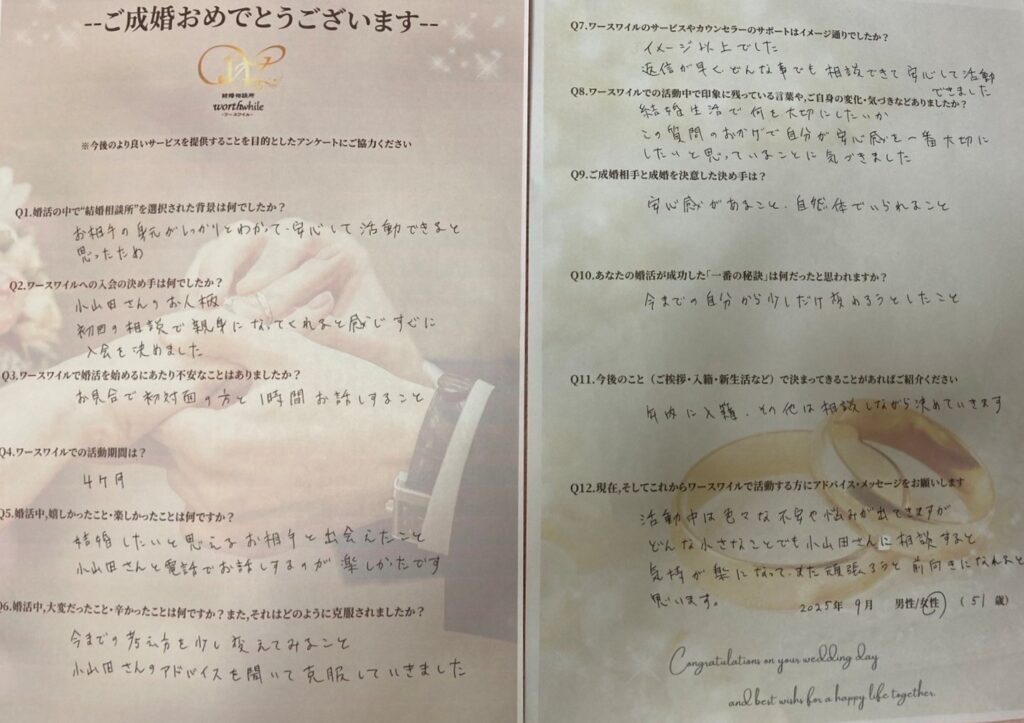 --ご成婚おめでとうございます--
結婚相談所
worthwhile
-ワースワイル-
※今後のより良いサービスを提供することを目的としたアンケートにご協力ください
Q1.婚活の中で“結婚相談所”を選択された背景は何でしたか?
お相手の身元がしっかりとわかって、安心して活動できると
思ったため
Q2.ワースワイルへの入会の決め手は何でしたか?
小山田さんのお人柄
初回の相談で親身になってくれると感じすぐに
入会を決めました
Q3.ワースワイルで婚活を始めるにあたり不安なことはありましたか?
お見合で初対面の方と1時間お話しすること
Q4.ワースワイルでの活動期間は?
4ケ月
Q5.婚活中,嬉しかったこと・楽しかったことは何ですか?
結婚したいと思えるお相手と出会えたこと
小山田さんと電話でお話しするのが楽しかたです
Q6.婚活中,大変だったこと・辛かったことは何ですか?また,それはどのように克服されましたか?
今までの考え方を少し変えてみること
小山田さんのアドバイスを聞いて克服していきました
Q7.ワースワイルのサービスやカウンセラーのサポートはイメージ通りでしたか?
イメージ以上でした
返信が早く、どんな事でも相談できて安心して活動
できました
Q8.ワースワイルでの活動中で印象に残っている言葉や,ご自身の変化・気づきなどありましたか?
結婚生活で何を大切にしたいか
この質問のおかげで自分が安心感を一番大切に
したいと思っていることに気づきました
Q9.ご成婚相手と成婚を決意した決め手は?
安心感があること、自然体でいられること
Q10.あなたの婚活が成功した「一番の秘訣」は何だったと思われますか?
今までの自分から少しだけ変わろうとしたこと
Q11.今後のこと(ご挨拶・入籍・新生活など)で決まってきることがあればご紹介ください
年内に入籍、その他は相談しながら決めていきます
Q12.現在,そしてこれからワースワイルで活動する方にアドバイス・メッセージをお願いします
活動中は色々な不安や悩みが出てきますが
どんな小さなことでも小山田さんに相談すると
気持が楽になって、また頑張ろうと前向きになれると
思います。
2025年 9月 男性/女性 (51歳)
Congratulations on your wedding day
and best wishes for a happy life together.